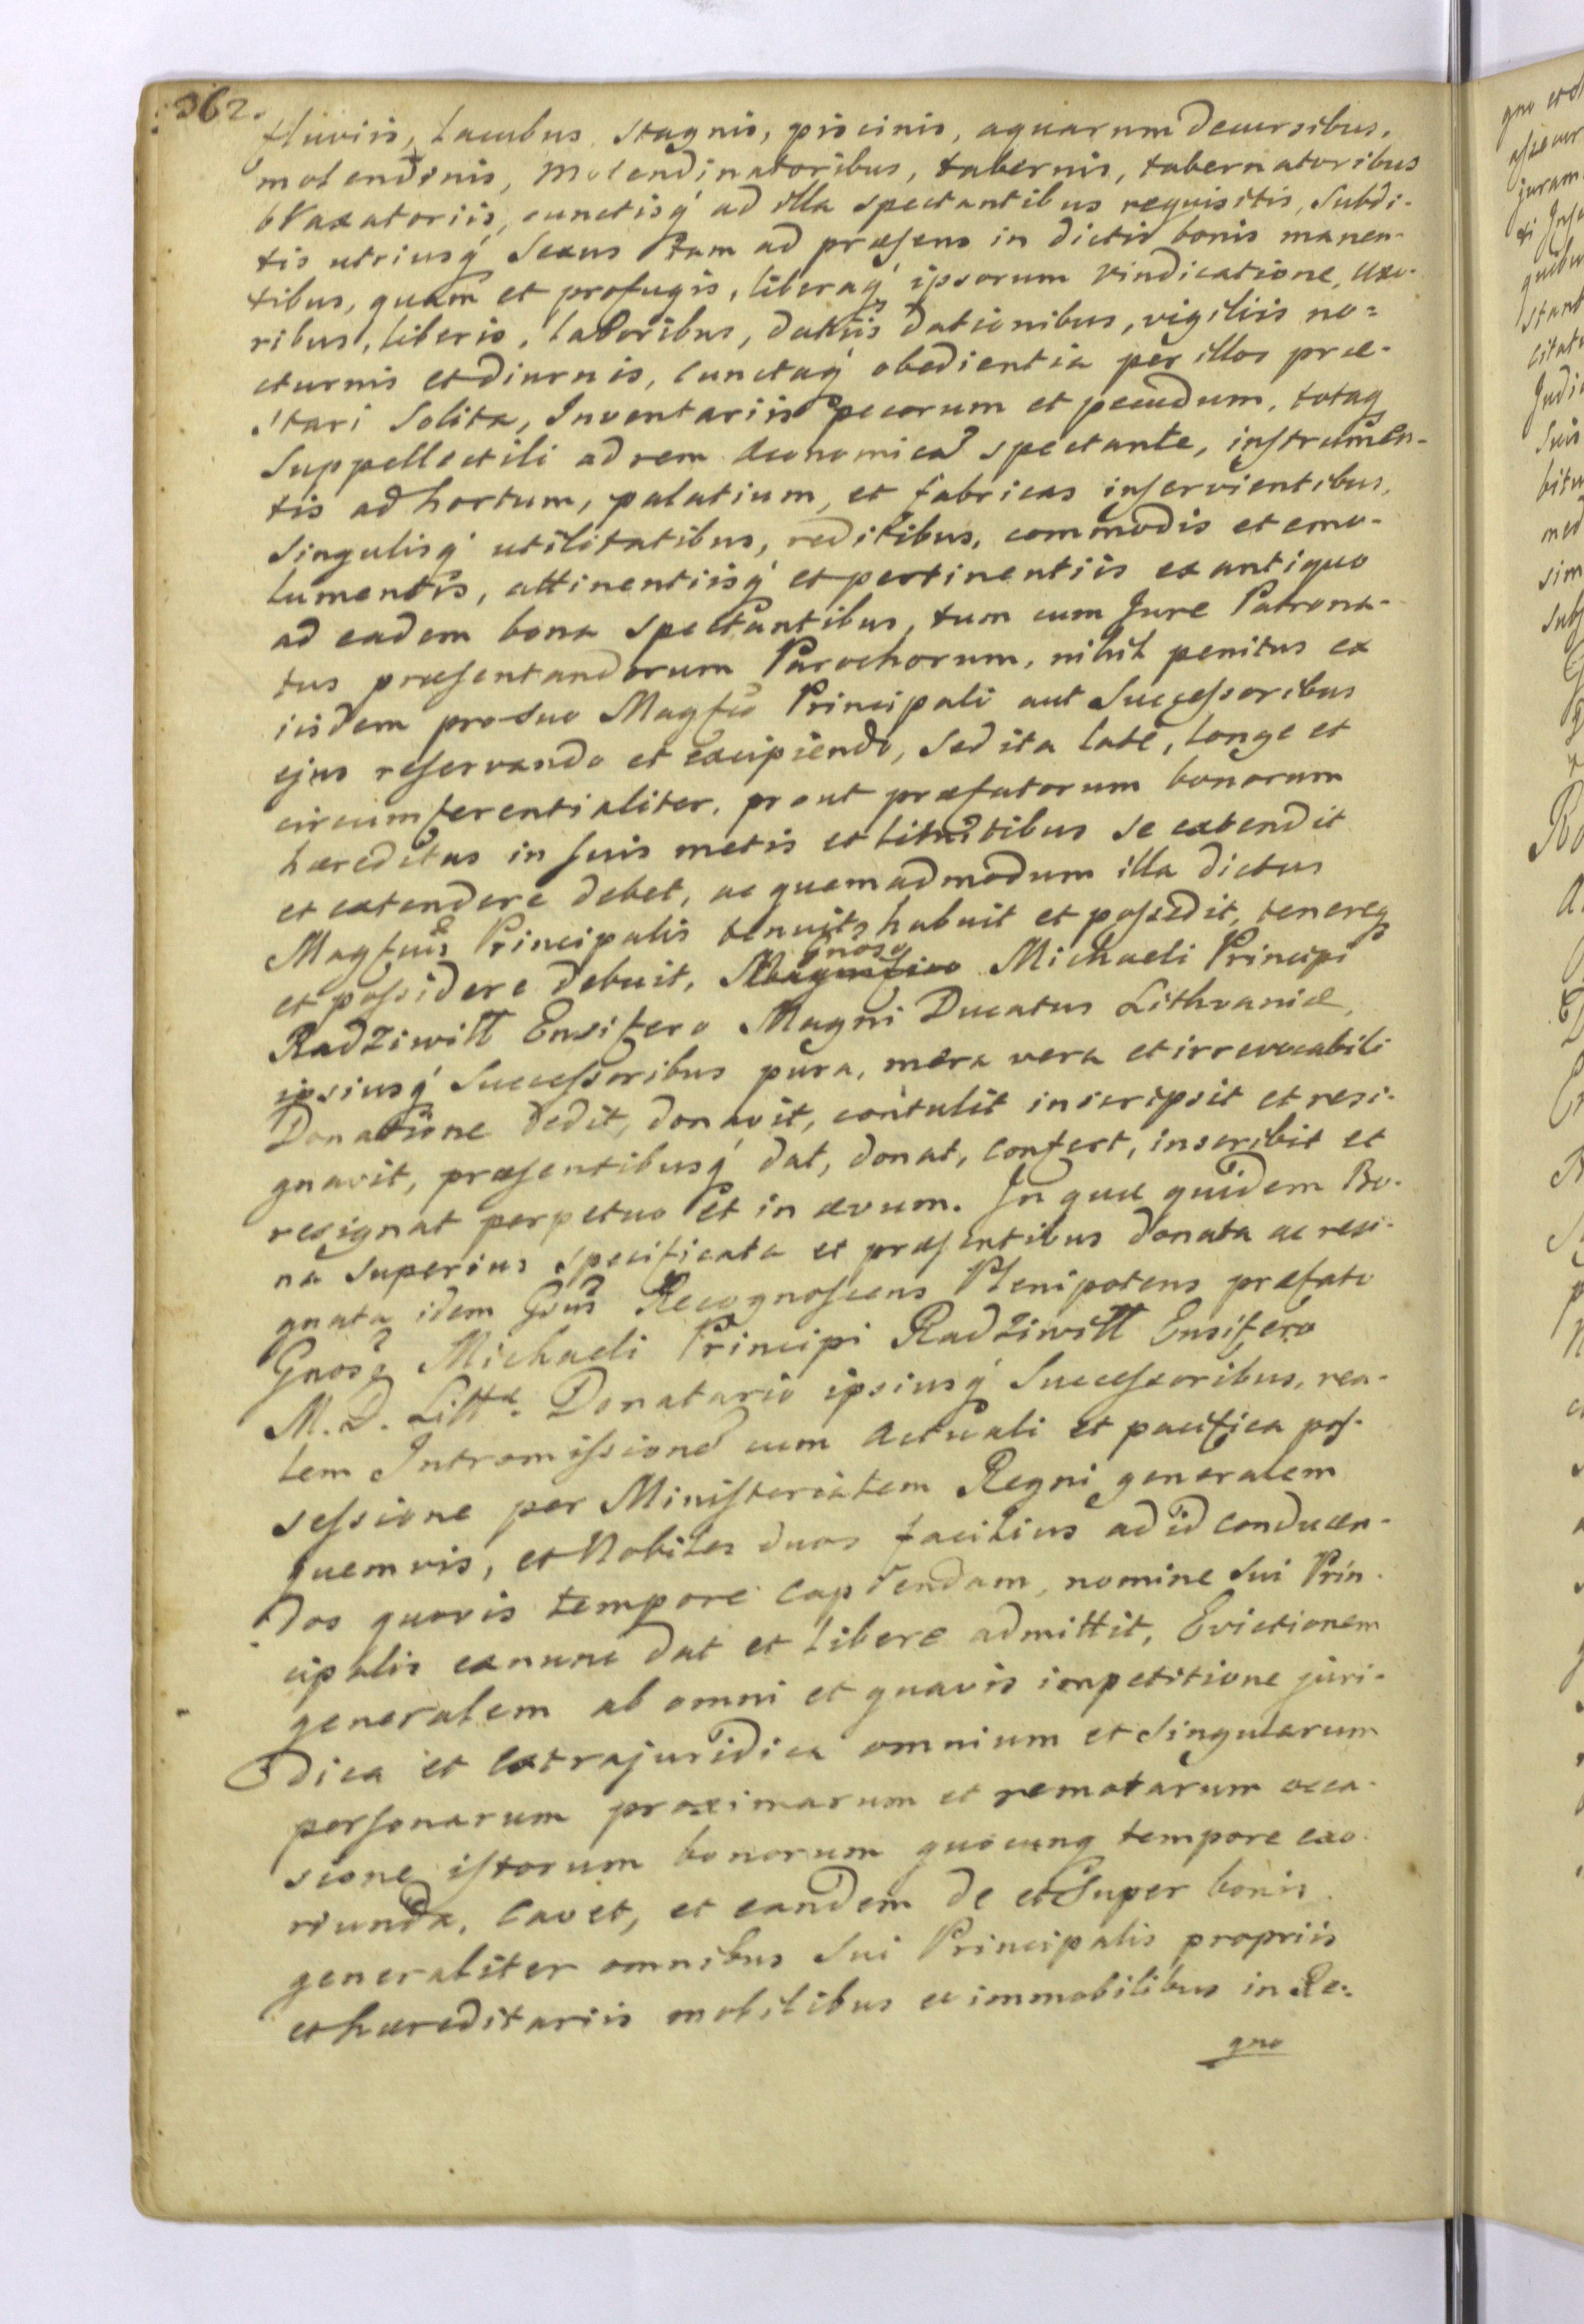 362.
fluviis, lacubus, stagnis, piscinis, aquarum decursibus,
molendinis, Molendinatoribus, tabernis, tabernatoribus
braxatoriis, cunctisq́ ad illa spectantibus requisitis, Subdi-
tis utriusq́ Sexus tam ad præsens in dictis bonis manen-
tibus, quam et profugis, liberaq́ ipsorum vindicatione, uxo-
ribus, liberis, laboribus, datiis dationibus, vigiliis no=
cturnis et diurnis, cunctaq́ obedientia per illos præ-
stari Solita, Inventariis pecorum et pecudum, totaq
Suppellectili ad rem œconomicā spectante, instrumen-
tis ad hortum, palatium, et fabricas inservientibus,
Singulisq́ utilitatibus, reditibus, commodis et emo-
lumentis, attinentiisq́ et pertinentiis ex antiquo
ad eadem bona spectantibus, tum cum Jure Patrona-
tus præsentandorum Parochorum, nihil penitus ex
iisdem pro suo Magfco Principali aut Successoribus
ejus reservando et excipiendo, Sed ita late, longe et
circumferentialiter, prout præfatorum bonorum
hæreditas in suis metis et limitibus se extendit
et extendere debet, ac quemadmodum illa dictus
Magfcus Principalis tenuit, habuit et possedit, tenereq
Gnoso
et possidere debuit, Magnifico Michaeli Principi
Radziwiłł Ensifero Magni Ducatus Lithvaniæ,
ipsiusq́ Successoribus pura, mera vera et irrevocabili
Donatione dedit, donavit, contulit inscripsit et resi-
gnavit, præsentibusq́ dat, donat, confert, inscribit et
resignat perpetuo et in ævum. In quæ quidem Bo-
na Superius specificata et præsentibus donata ac resi-
gnata idem Gsus Recognoscens Plenipotens præfato
Gnoso Michaeli Principi Radziwiłł Ensifero
M. D. Litt. Donatario ipsiusq́ Successoribus, rea-
lem Intromissionē cum actuali et pacifica pos-
sessione per Ministerialem Regni generalem
quemvis, et Nobiles duos facilius ad id conducen-
dos quovis tempore capiendam, nomine Sui Prin-
cipalis exnunc dat et libere admittit, Evictionem
generalem ab omni et quavis impetitione juri-
dica et extrajuridica omnium et Singularum
personarum proximarum et remotarum occa-
sione istorum bonorum quocunq tempore exo-
riunda, Cavet, et eandem de et Super bonis
generaliter omnibus Sui Principalis propriis
et hæreditariis mobilibus et immobilibus in Re-
gno